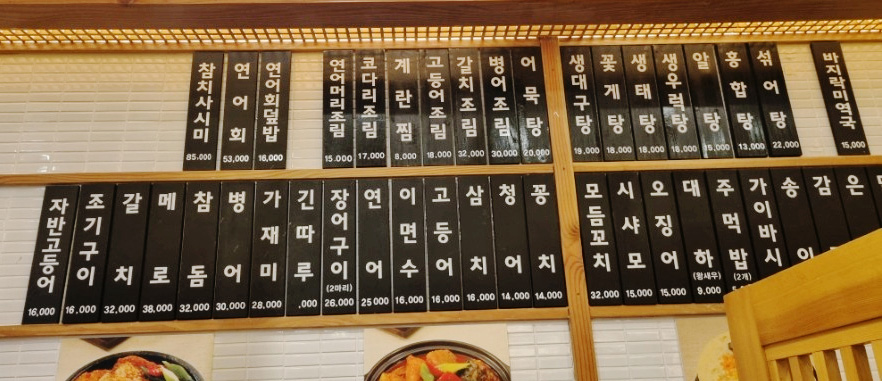 참치사시미 85.000
연어회 53,000
연어회덮밥 16,000
연어머리조림 15.000
코다리조림 17,000
계란찜 8,000
고등어조림 18,000
갈치조림 32,000
병어조림 30,000
어묵탕 20,000
생대구탕 19,000
꽃게탕 18,000
생태탕 18,000
생우럭탕 18,000
알탕 15,000
홍합탕 13,000
섞어탕 22,000
바지락미역국 15,000
자반고등어 16,000
조기구이 16,000
갈치 32,000
메로 38,000
참돔 32,000
병어 30,000
가재미 28,000
긴따루 ,000
장어구이 (2마리) 26,000
연어 25000
이면수 16,000
고등어 16,000
삼치 16,000
청어 14,000
꽁치 14,000
모듬꼬치 32,000
시샤모 15,000
오징어 15,000
대하 (왕새우) 9,000
주먹밥 (2개)
가이바시
송이
감
은